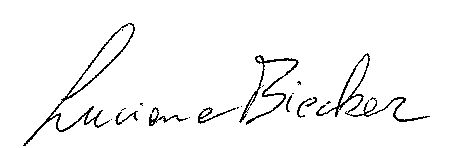 Luciane Biecker